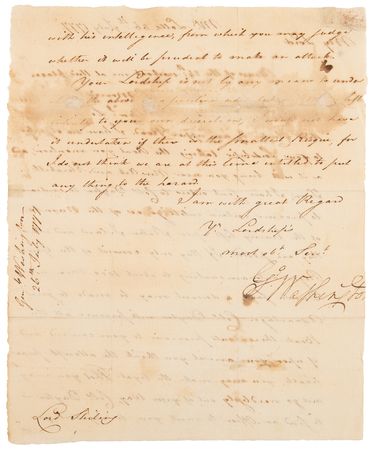 with his intelligence, from which you may judge
whether it will be prudent to make an attack
Your Lordship is not by any means under
to your own discretion, I would not have
it undertaken if there is the smallest risque, for
I do not think we are at this time intitled to put
any thing to the hazard.
I am with great Regard
Yr Lordship's
most obt Servt
Go: Washington
Gen Washington
26th July 1777
Lord Stirling